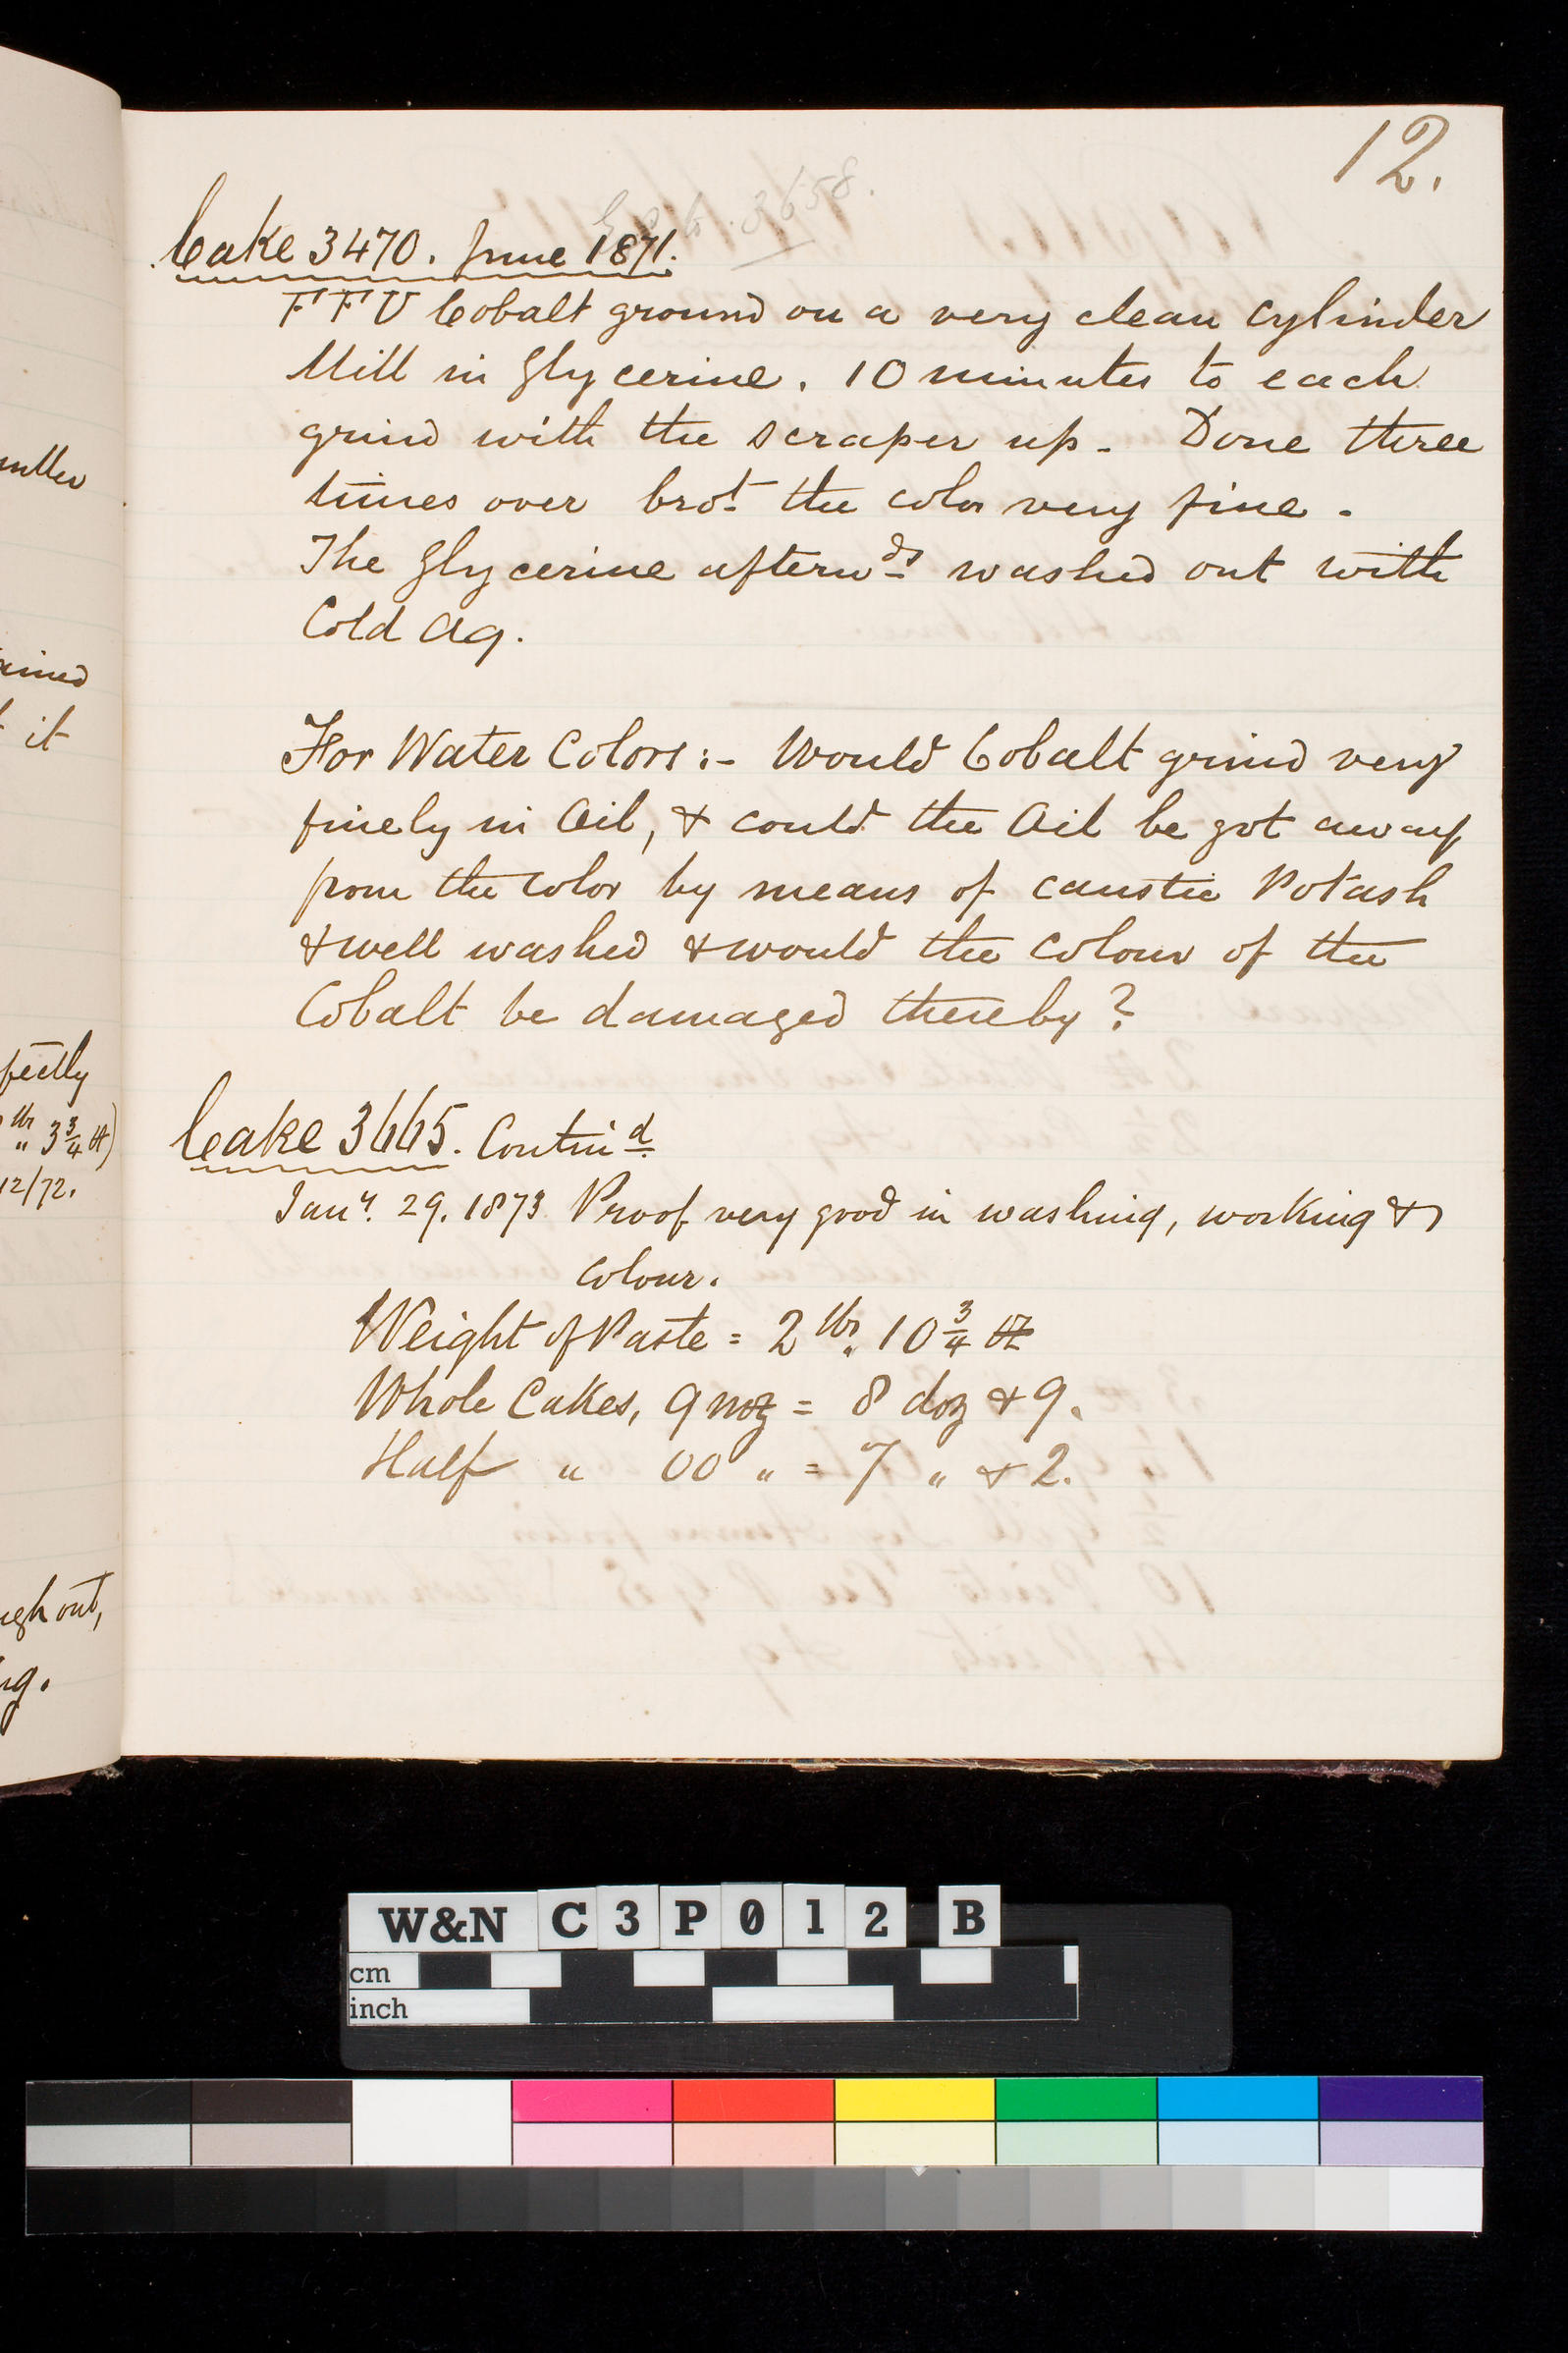 12.
3658.
Cake 3470. June 1871.
F F U Cobalt ground on a very clean Cylinder
Mill in Glycerine. 10 minutes to each
grind with the scraper up - Done three
times over brot. the color very fine -
The Glycerine afterwds washed out with
Cold Aq.
For Water Colors :- Would Cobalt grind very
finely in Oil, & could the Oil be got away
from the color by means of caustic Potash
& well washed & would the colour of the
Cobalt be damaged thereby?
Cake 3665. Contind
Jany. 29. 1873 Proof very good in washing, working &
colour.
Weight of Paste = 2 lbs. 10 3/4
Whole Cakes, 9 = 8 doz & 9.
Half " 00 " = 7 " & 2.
it
fectly
lbs " 3 3/4
12/72.
ugh out,
W&N C3P012 B
cm
inch